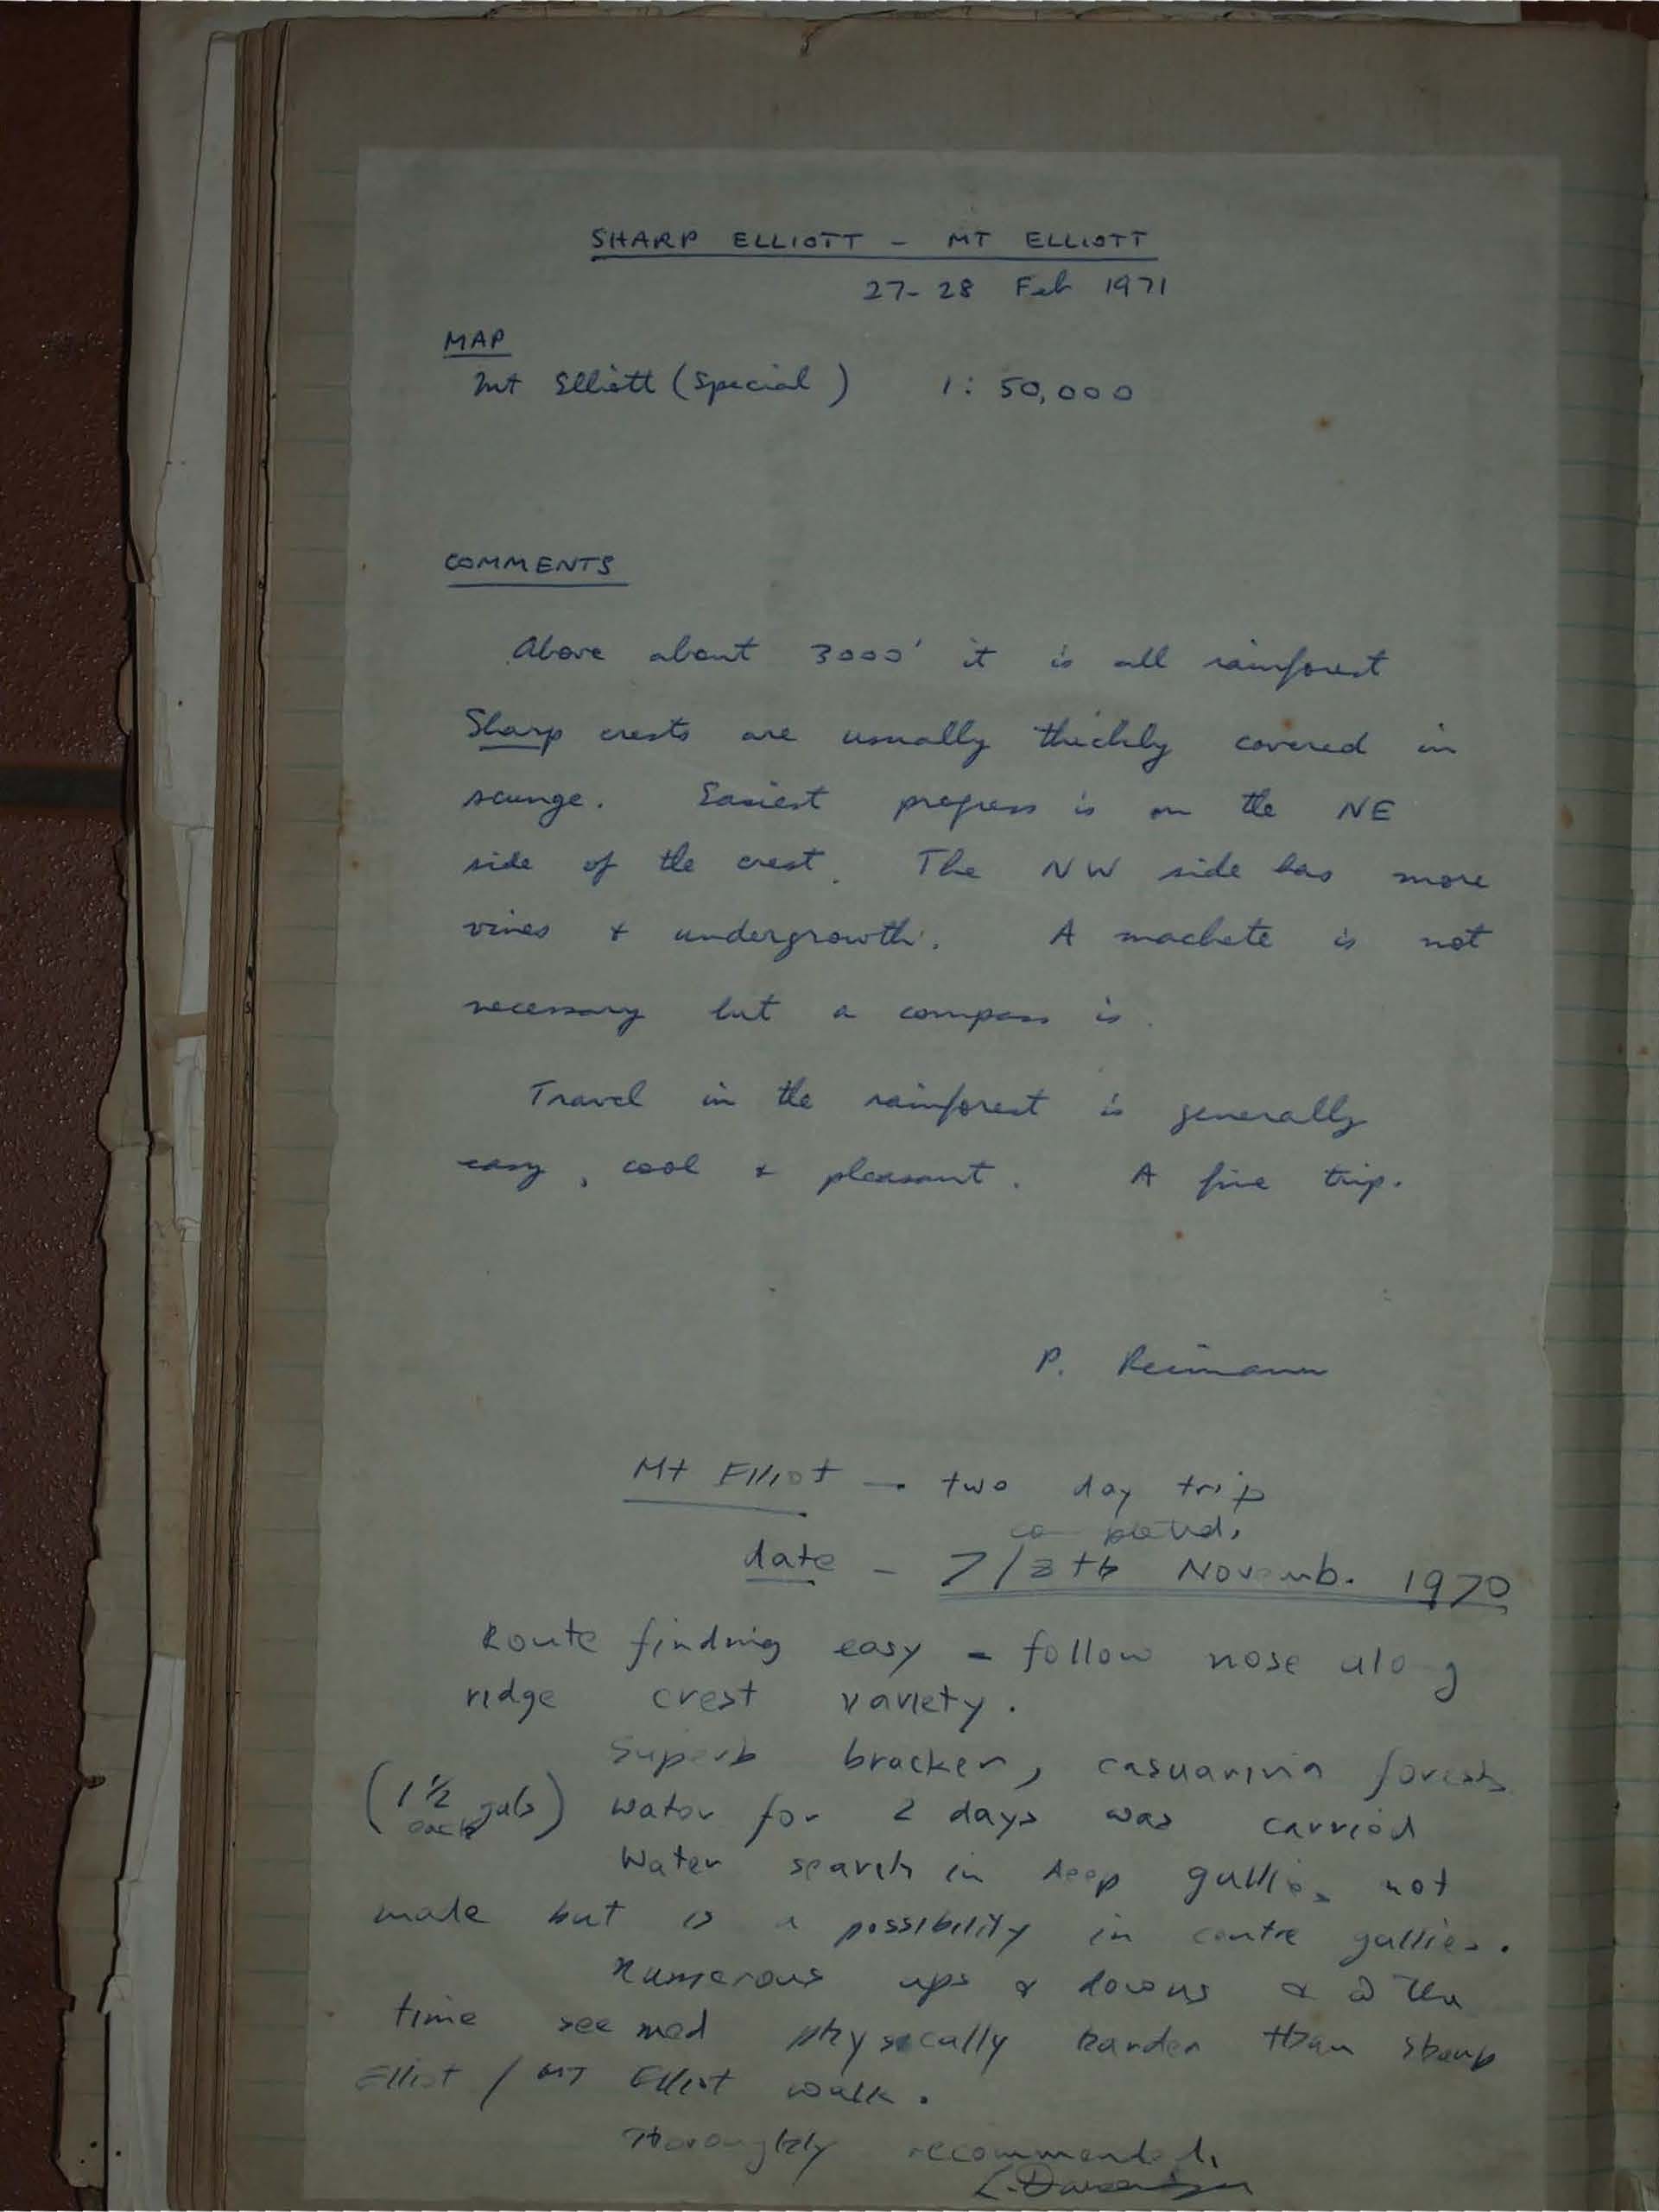 SHARP ELLIOTT - MT ELLIOTT
27-28 Feb 1971
MAP
Mt Elliott (Special) 1: 50,000
COMMENTS
Above about 3000' it is all rainforest
Sharp crests are usually thickly covered in
scunge. Easiest progress is on the NE
side of the crest. The NW side has more
vines + undergrowth. A machete is not
necessary but a compass is.
Travel in the rainforest is generally
easy, cool + pleasant. A fine trip.
P. Reimann
Mt Elliot - two day trip
date - 7/8th Novemb. 1970
Route finding easy - follow nose along
ridge crest variety.
Superb bracken, casuarina forests
(1½ gals each) Water for 2 days was carried
Water search in deep gullies not
made but is a possibility in centre gullies.
Numerous ups & downs & @ the
time seemed physically harder than sharp
Elliot / MT Elliot walk.
Thoroughly recommended.